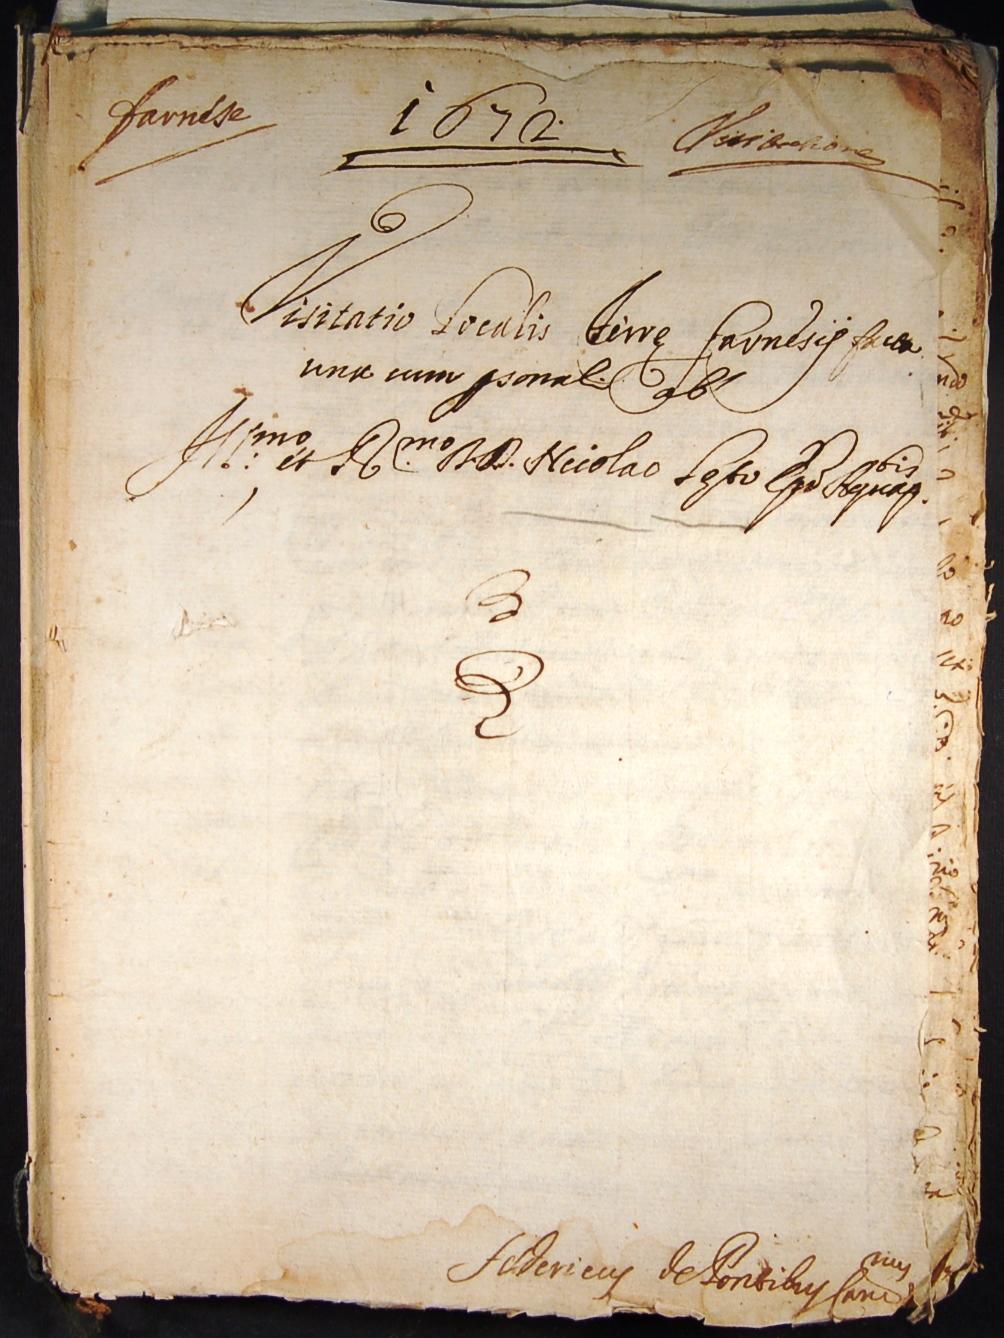 farnese 1672 Visitatione
Visitatio Localis terrę farnesij facta
una cum psonal: ab
Ill:mo et R:mo D.D. Nicolao Leyto Epo Aquap.
Federicus de Pontibus